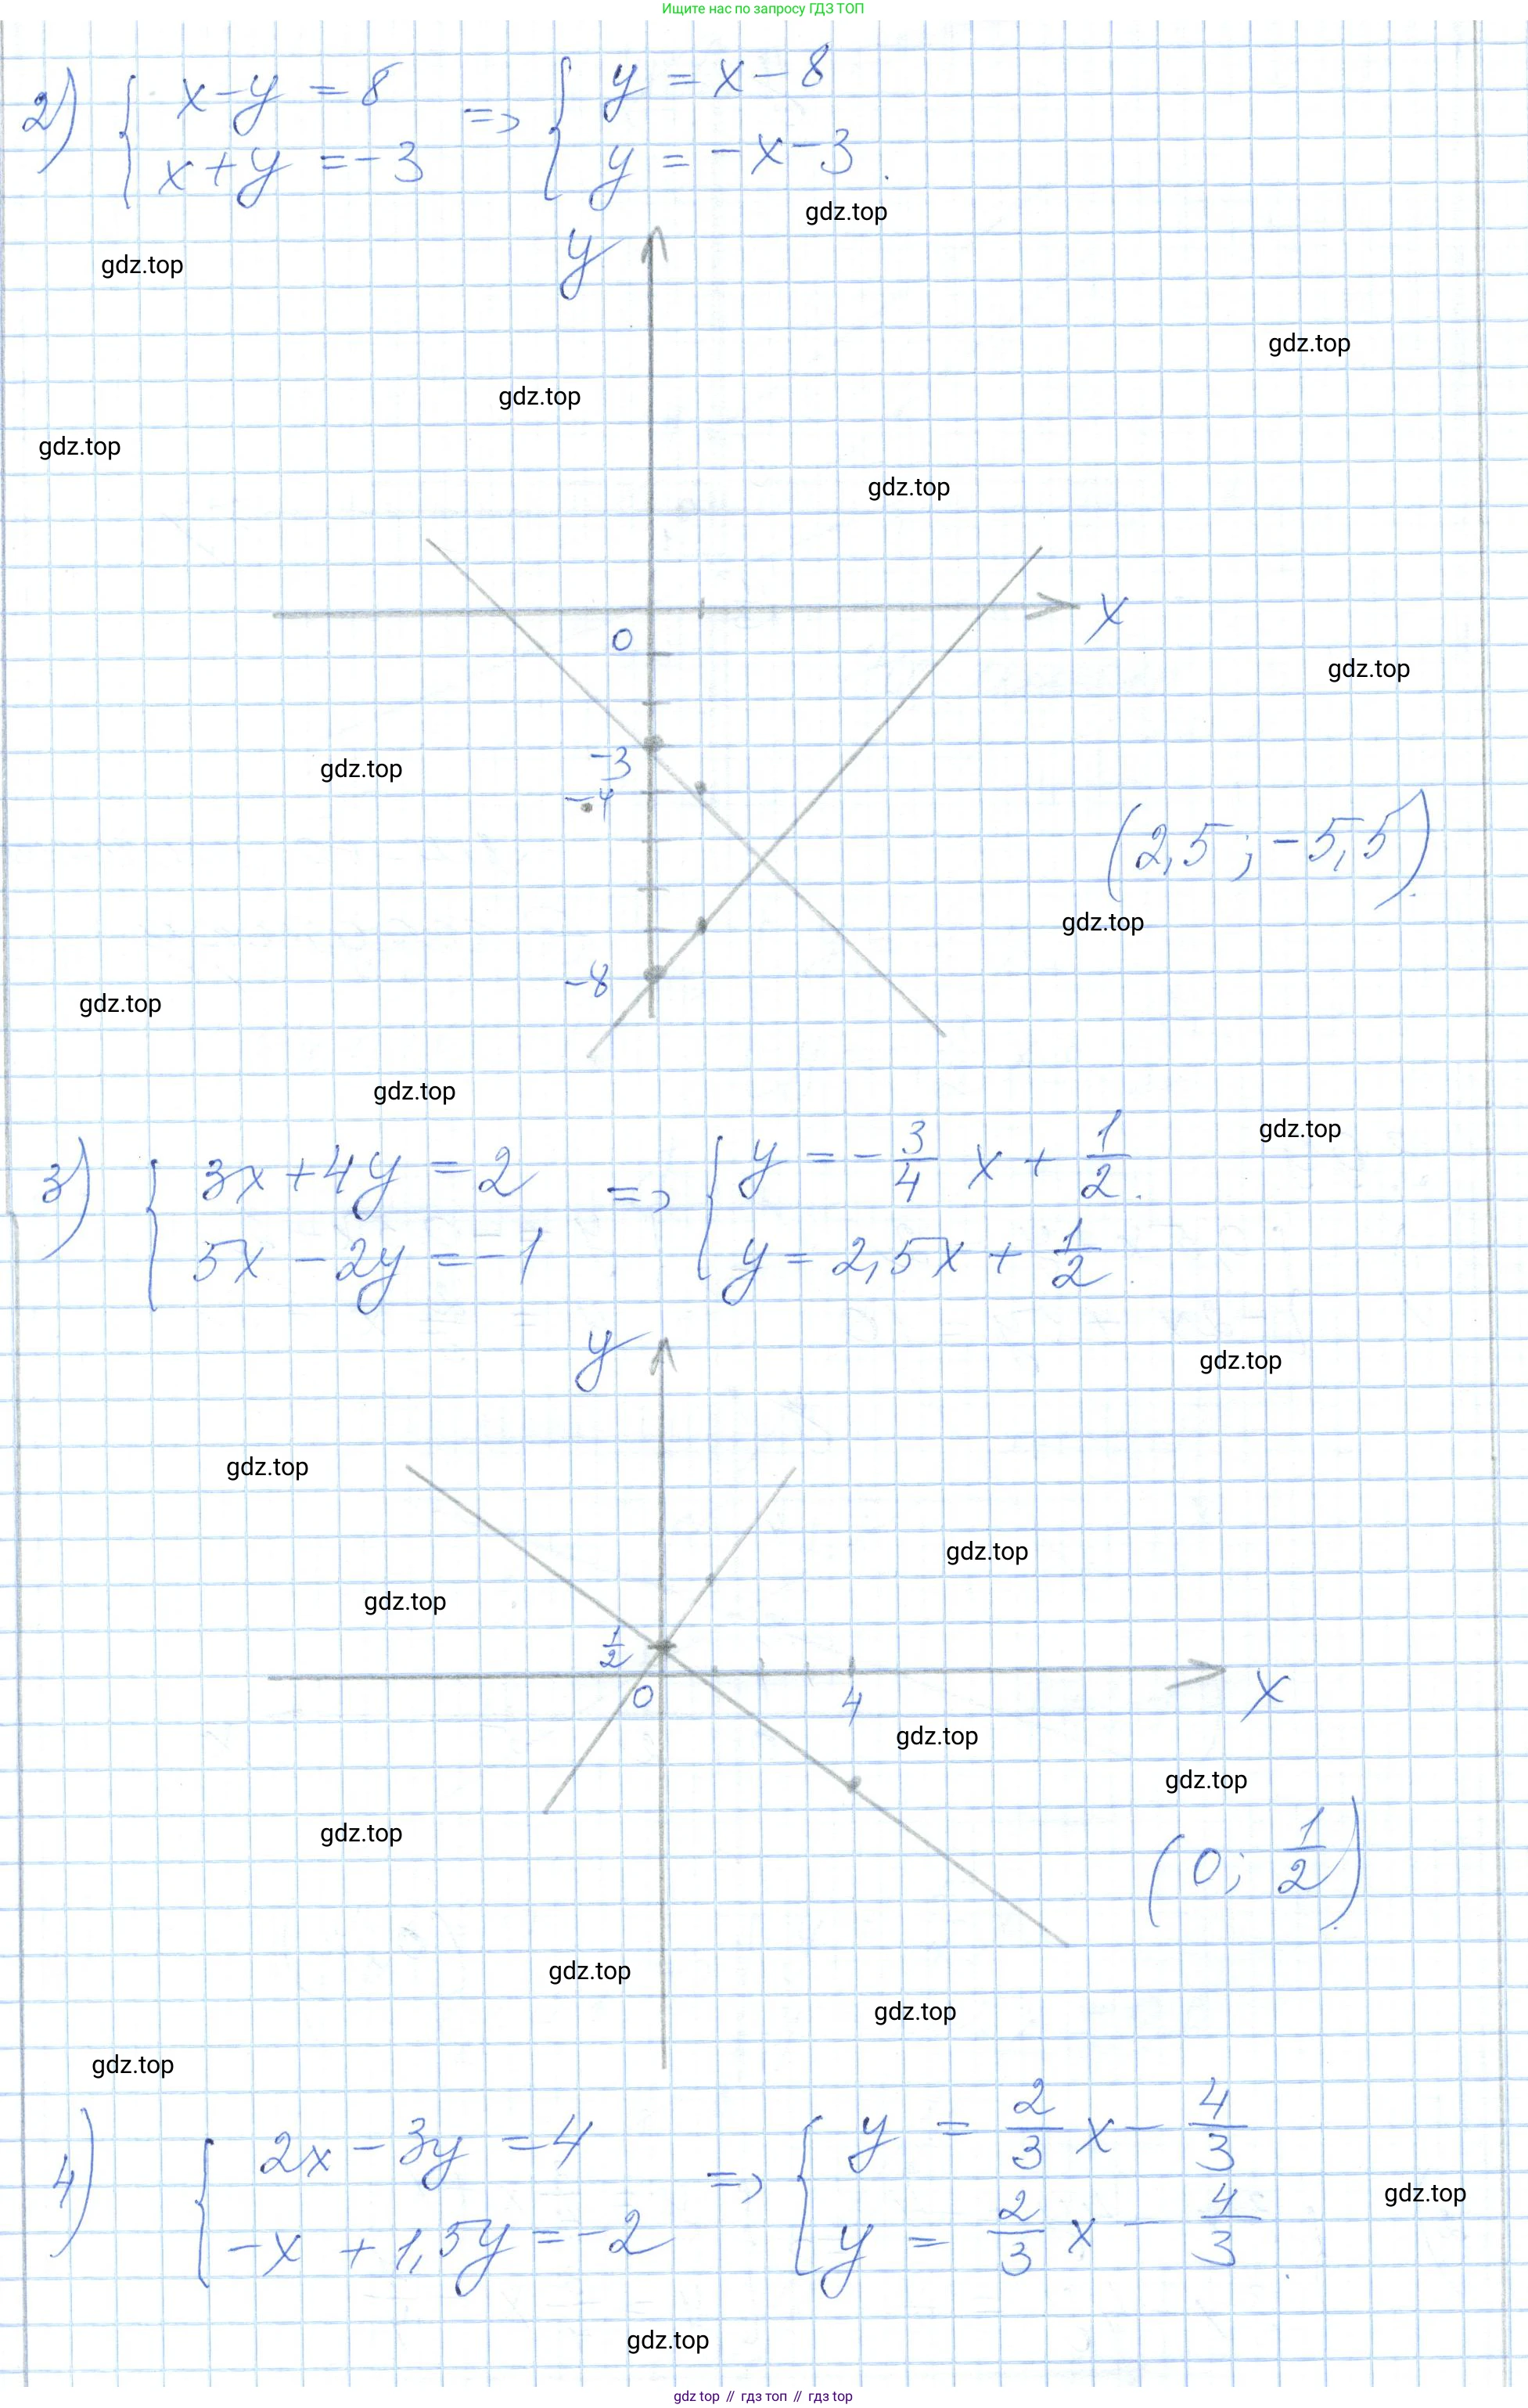 Ищите нас по запросу ГДЗ ТОП
2) { x - y = 8 => { y = x - 8
x + y = -3 y = -x - 3.
gdz.top
y
gdz.top
gdz.top
gdz.top
gdz.top
gdz.top
x
0
gdz.top
-3
gdz.top
-4
(2,5 ; -5,5)
gdz.top
-8
gdz.top
gdz.top
gdz.top
3) { 3x + 4y = 2 => { y = -3/4 x + 1/2.
5x - 2y = -1 y = 2,5x + 1/2.
y
gdz.top
gdz.top
gdz.top
gdz.top
1/2
0
4
x
gdz.top
gdz.top
gdz.top
(0; 1/2).
gdz.top
gdz.top
gdz.top
4) { 2x - 3y = 4 => { y = 2/3 x - 4/3
-x + 1,5y = -2 y = 2/3 x - 4/3.
gdz.top
gdz.top
gdz top // гдз топ // гдз top